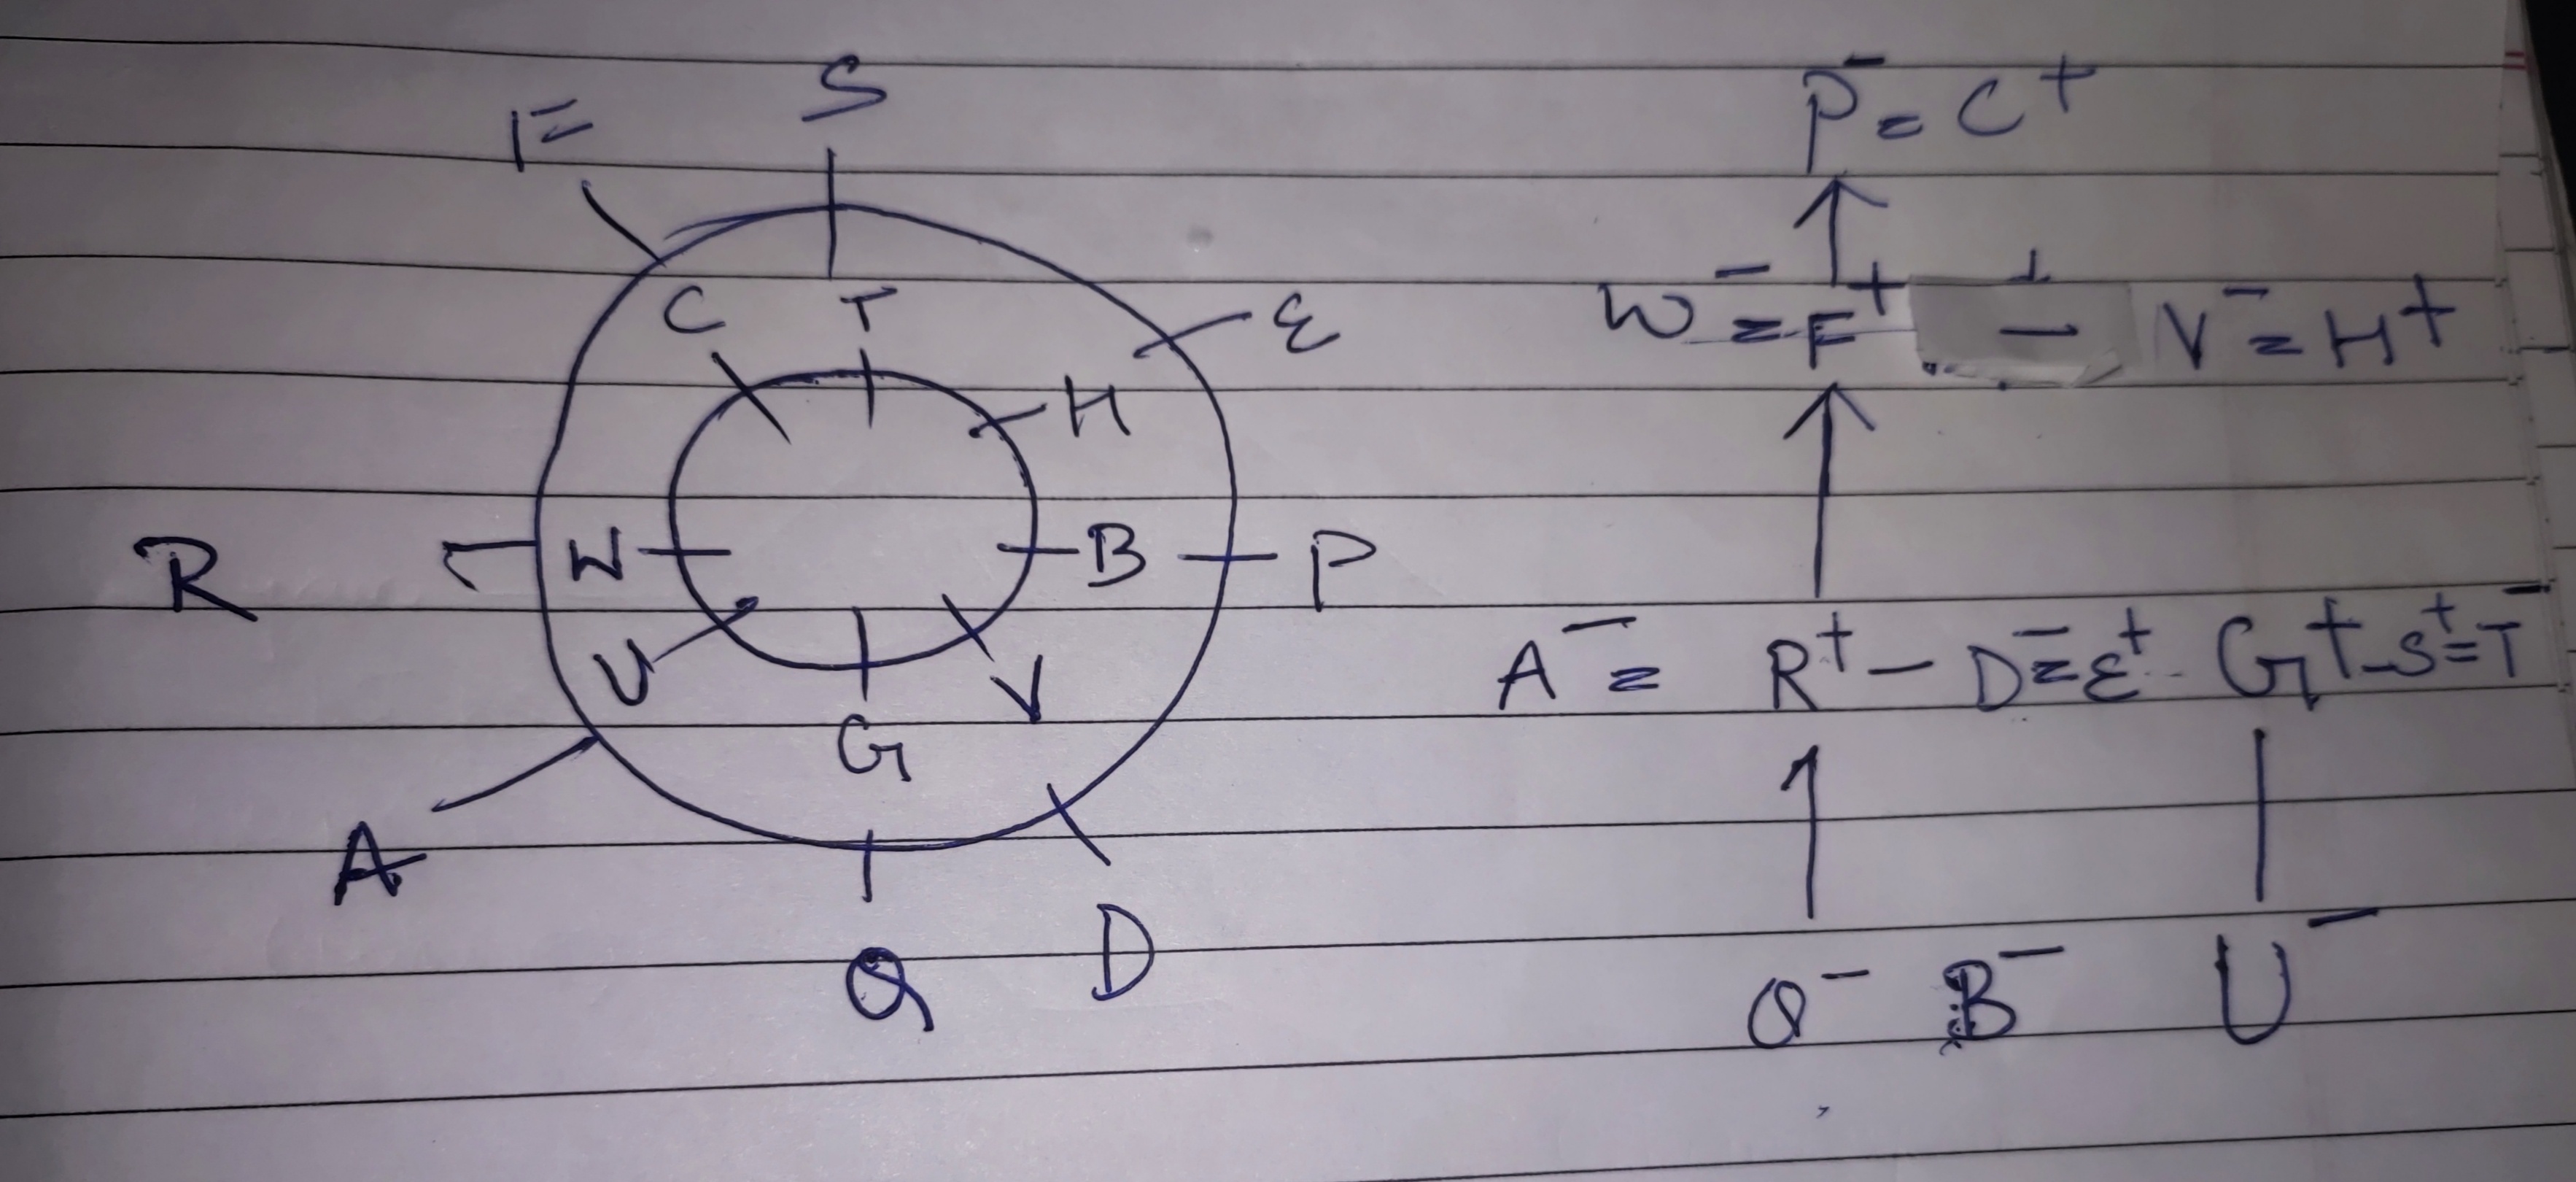 S
F
C T
E
H
R W B P
U V
G
A
Q D
P⁻ = C⁺
W⁻ = F⁺ — V⁻ = H⁺
A⁻ = R⁺ — D⁻ = E⁺ - G⁺ - S⁺ = T⁻
Q⁻ B⁻ U⁻